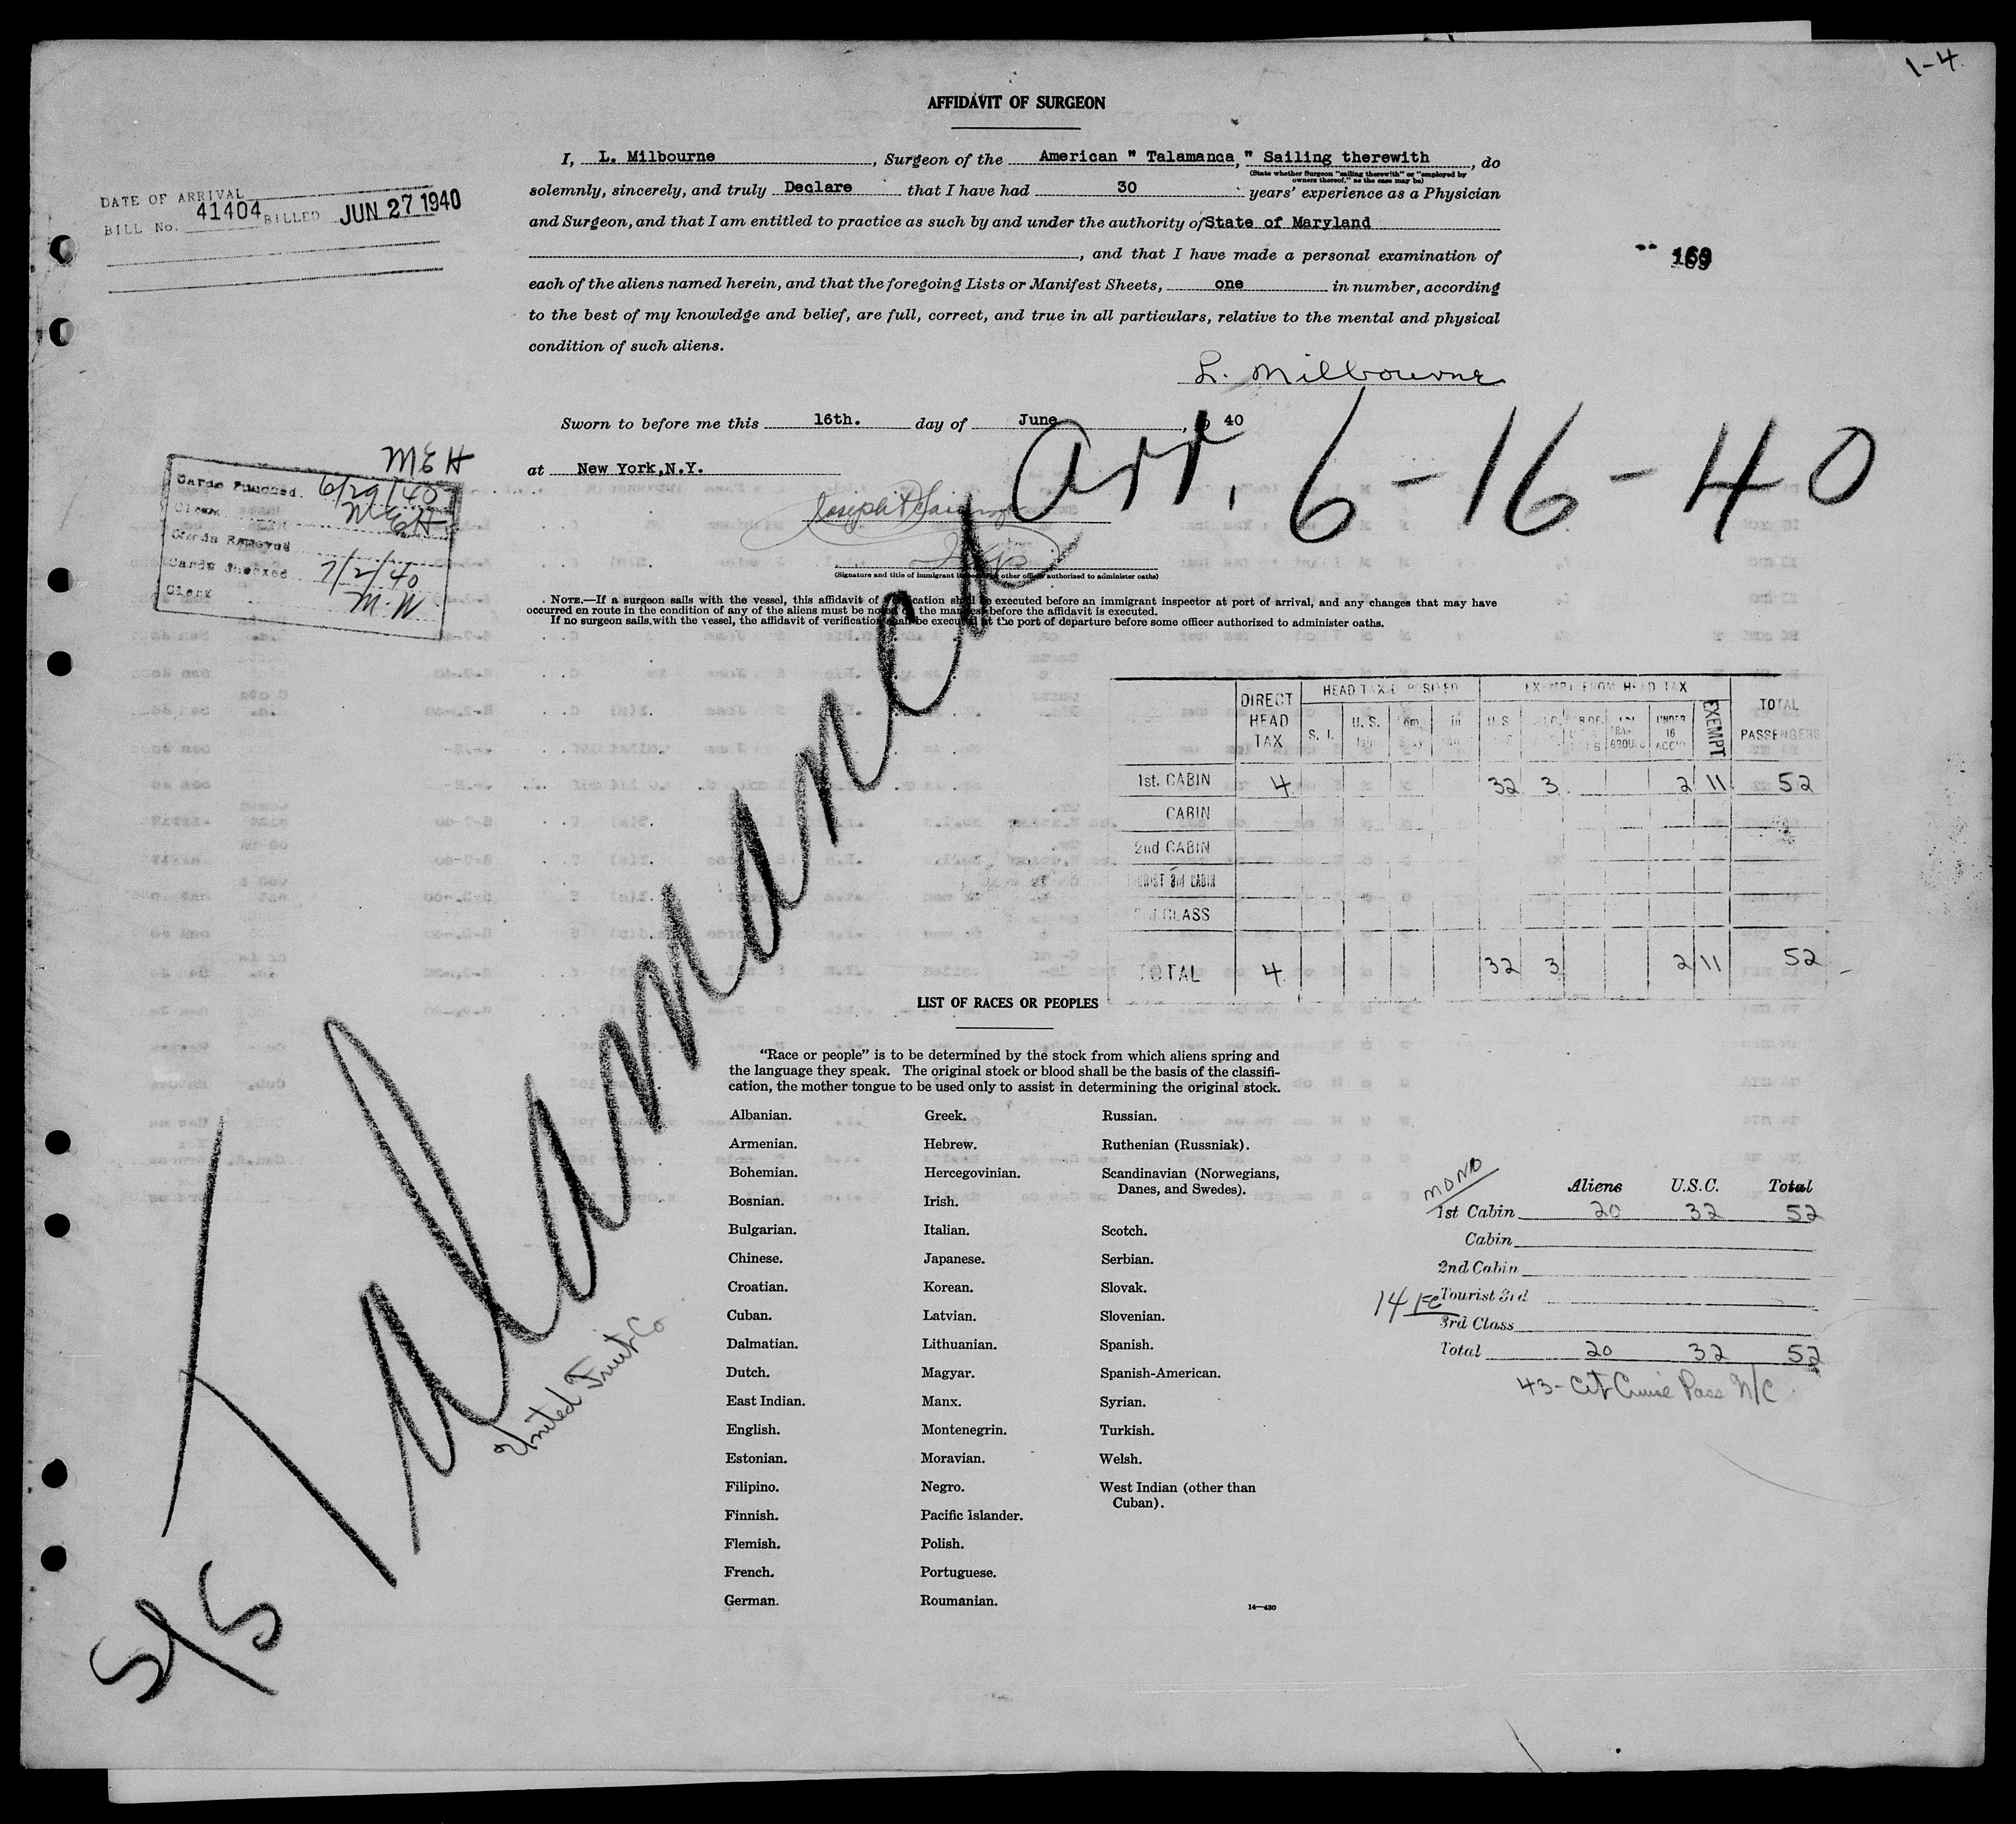 1-4
AFFIDAVIT OF SURGEON
I, L. Milbourne, Surgeon of the American " Talamanca, " Sailing therewith, do
(State whether Surgeon "sailing therewith" or "employed by
owners thereof," as the case may be)
solemnly, sincerely, and truly Declare that I have had 30 years' experience as a Physician
and Surgeon, and that I am entitled to practice as such by and under the authority of State of Maryland
, and that I have made a personal examination of
each of the aliens named herein, and that the foregoing Lists or Manifest Sheets, one in number, according
to the best of my knowledge and belief, are full, correct, and true in all particulars, relative to the mental and physical
condition of such aliens.
L. Milbourne
DATE OF ARRIVAL
BILL No. 41404 BILLED JUN 27 1940
169
Sworn to before me this 16th. day of June, 40
at New York,N.Y.
Arr. 6-16-40
(Signature and title of immigrant other officer authorized to administer oaths)
MEH
Cards Punched 6/29/40
Clerk MEH
Cards Removed
Cards Checked 7/2/40
Clerk M.W
NOTE.—If a surgeon sails with the vessel, this affidavit of shall be executed before an immigrant inspector at port of arrival, and any changes that may have
occurred en route in the condition of any of the aliens must be noted on the manifest before the affidavit is executed.
If no surgeon sails with the vessel, the affidavit of verification shall be executed at the port of departure before some officer authorized to administer oaths.
DIRECT HEAD TAX HEAD TAX DEPOSITED EXEMPT FROM HEAD TAX TOTAL PASSENGERS
S. I. U. S. U. S. UNDER 16 EXEMPT
1st. CABIN 4 32 3 2 11 52
CABIN
2nd CABIN
TOURIST 3rd CABIN
3rd CLASS
TOTAL 4 32 3 2 11 52
S/S Talamanca
United Fruit Co
LIST OF RACES OR PEOPLES
"Race or people" is to be determined by the stock from which aliens spring and
the language they speak. The original stock or blood shall be the basis of the classifi-
cation, the mother tongue to be used only to assist in determining the original stock.
Albanian.
Armenian.
Bohemian.
Bosnian.
Bulgarian.
Chinese.
Croatian.
Cuban.
Dalmatian.
Dutch.
East Indian.
English.
Estonian.
Filipino.
Finnish.
Flemish.
French.
German.
Greek.
Hebrew.
Hercegovinian.
Irish.
Italian.
Japanese.
Korean.
Latvian.
Lithuanian.
Magyar.
Manx.
Montenegrin.
Moravian.
Negro.
Pacific Islander.
Polish.
Portuguese.
Roumanian.
Russian.
Ruthenian (Russniak).
Scandinavian (Norwegians,
Danes, and Swedes).
Scotch.
Serbian.
Slovak.
Slovenian.
Spanish.
Spanish-American.
Syrian.
Turkish.
Welsh.
West Indian (other than
Cuban).
14—430
Aliens U.S.C. Total
1st Cabin 20 32 52
Cabin
2nd Cabin
Tourist 3rd
3rd Class
Total 20 32 52
43- Cit Cruise Pass N/C